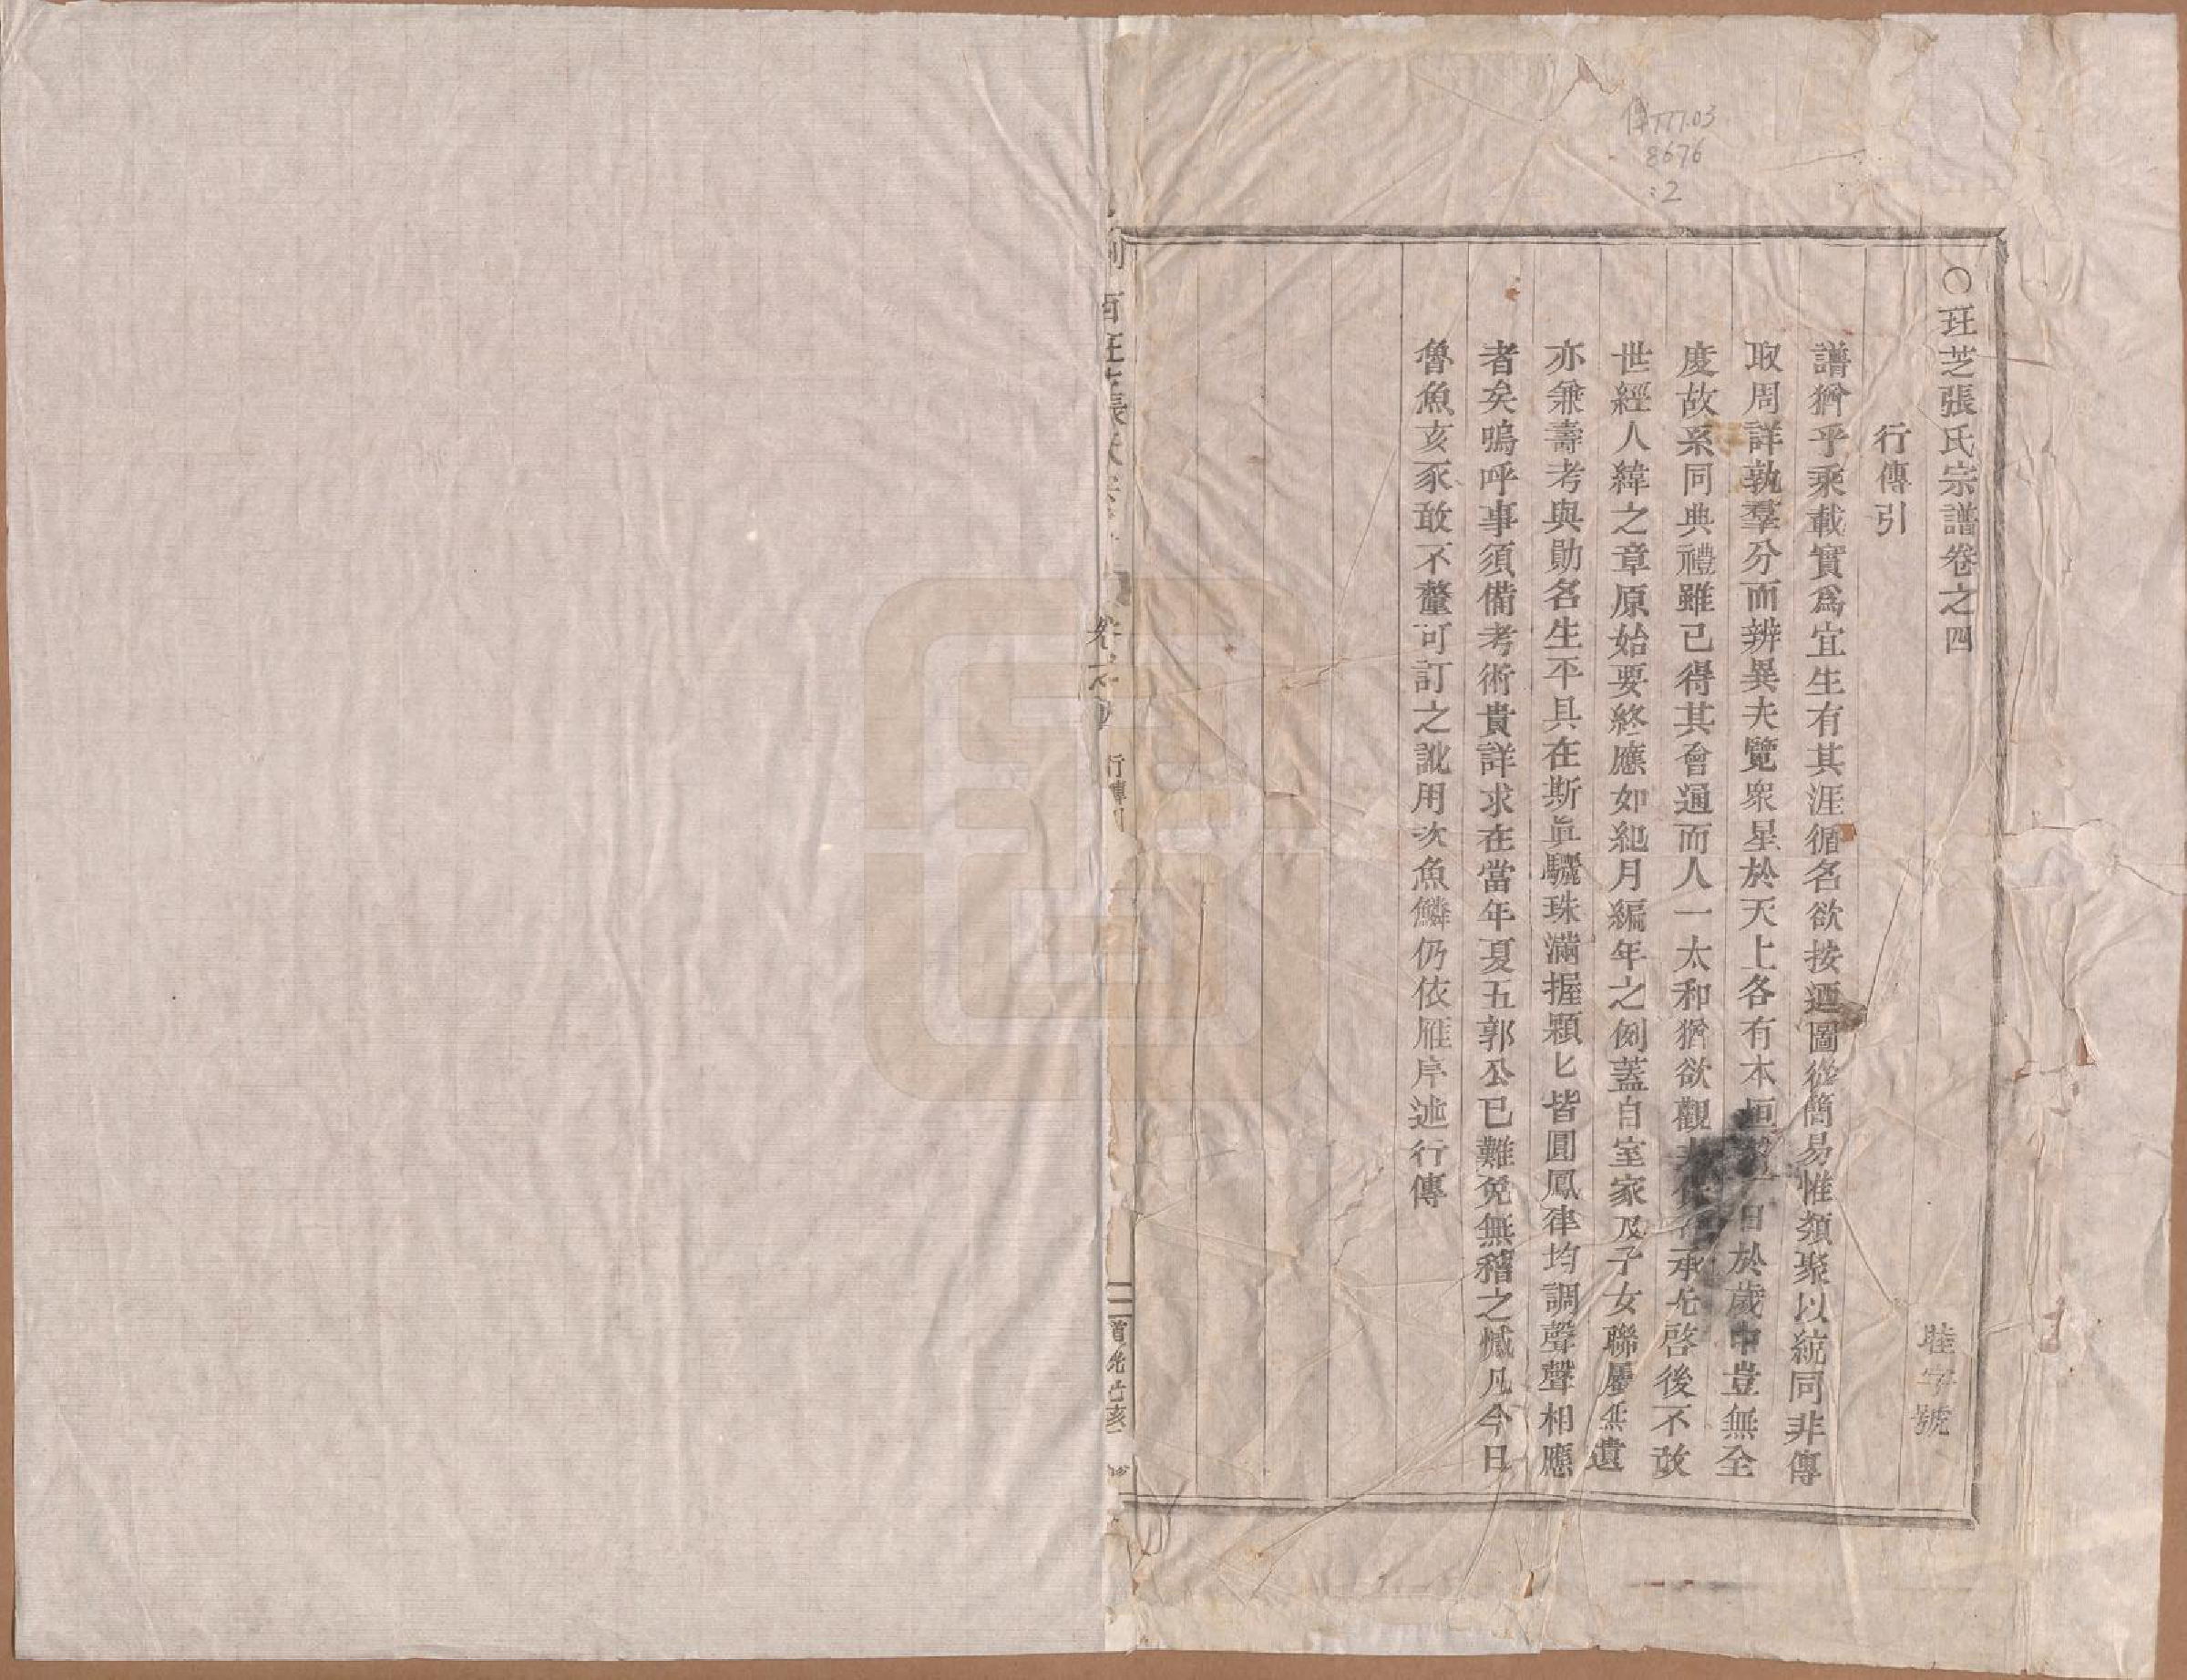 傳777.03
8676
:2
〇珏芝張氏宗譜卷之四
睦字號
行傳引
譜猶乎乘載實爲宜生有其涯循名欲按迺圖從簡易惟類聚以統同非傳
取周詳孰羣分而辨異夫覽衆星於天上各有本垣 日於歲中豈無全
度故系同典禮雖已得其會通而人一太和猶欲觀 承先啓後不敢
世經人緯之章原始要終應如紀月編年之例蓋自室家及子女聯屬無遺
亦兼壽考與勛名生平具在斯眞驪珠滿握顆匕皆圓鳳律均調聲聲相應
者矣嗚呼事須備考術貴詳求在當年夏五郭公已難免無稽之憾凡今日
魯魚亥豕敢不釐可訂之訛用次魚鱗仍依雁序述行傳
行傳引